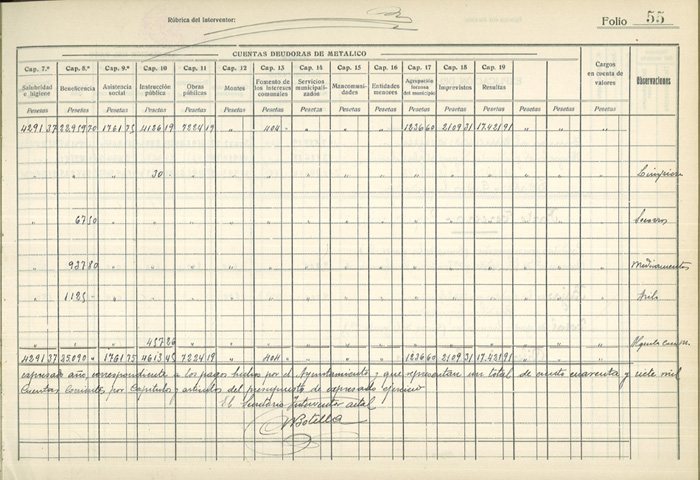 Rúbrica del Interventor:
Folio 55
CUENTAS DEUDORAS DE METALICO
Cap. 7.º Cap. 8.º Cap. 9.º Cap. 10 Cap. 11 Cap. 12 Cap. 13 Cap. 14 Cap. 15 Cap. 16 Cap. 17 Cap. 18 Cap. 19 Cargos en cuenta de valores Observaciones
Salubridad e higiene Beneficencia Asistencia social Instrucción pública Obras públicas Montes Fomento de los intereses comunales Servicios municipalizados Mancomunidades Entidades menores Agrupación forzosa del municipio Imprevistos Resultas
Pesetas Pesetas Pesetas Pesetas Pesetas Pesetas Pesetas Pesetas Pesetas Pesetas Pesetas Pesetas Pesetas Pesetas Pesetas Pesetas
4291 37 22959 70 1761 75 4126 19 7224 19 " 404 - " " " 1236 60 2109 31 17421 91 " " "
" " " 30 - " " " " " " " " " " " "
" 67 50 " " " " " " " " " " " " " " Socorros
" 937 80 " " " " " " " " " " " " " " Medicamentos
" 1125 - " " " " " " " " " " " " " "
" " " 457 26 " " " " " " " " " " " "
4291 37 25090 " 1761 75 4613 45 7224 19 " 404 - " " " 1236 60 2109 31 17421 91 " " "
expresado año, correspondiente a los pagos hechos por el Ayuntamiento, y que representan un total de ciento cuarenta y siete mil
Cuentas Corrientes por Capítulos y artículos del presupuesto de expresado ejercicio
El Secretario Interventor actal
Botella